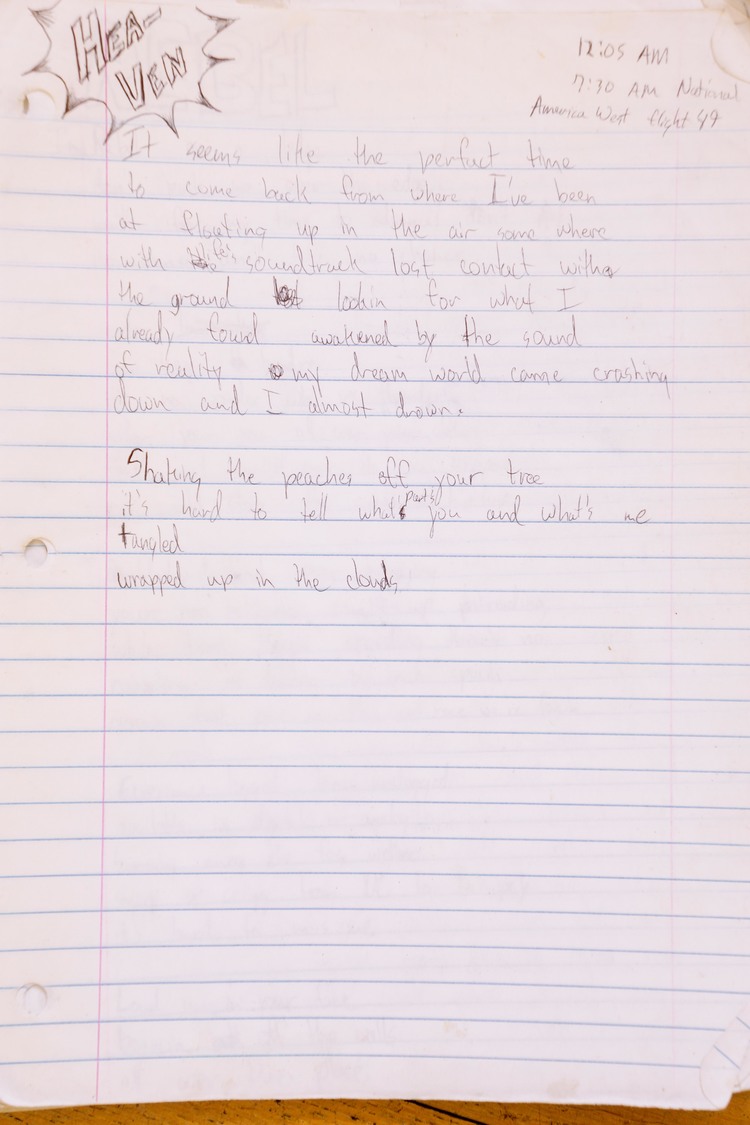 HEA-
VEN
12:05 AM
7:30 AM National
America West flight 49
It seems like the perfect time
to come back from where I've been
at floating up in the air some where
with life's soundtrack lost contact with
the ground lookin for what I
already found awakened by the sound
of reality my dream world came crashing
down and I almost drown.
Shaking the peaches off your tree
it's hard to tell what parts you and what's me
tangled
wrapped up in the clouds